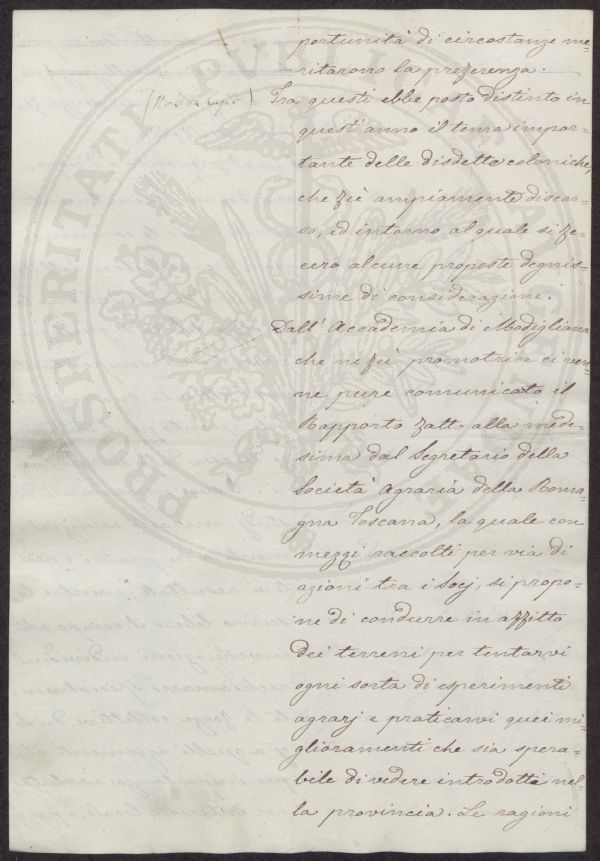 portunità di circostanze me-
ritarono la preferenza.
(Non da Capo) Tra questi ebbe posto distinto in
quest'anno il tema impor-
tante delle disdette coloniche,
che fù ampiamente discor-
so, ed intorno al quale si fe-
cero alcune proposte degnis-
sime di considerazione.
Dall'Accademia di Modigliana
che ne fù promotrice ci ven-
ne pure comunicato il
Rapporto fatto alla mede-
sima dal Segretario della
Società Agraria della Roma-
gna Toscana, la quale con
mezzi raccolti per via di
azioni tra i Socj, si propo-
ne di condurre in affitto
dei terreni per tentarvi
ogni sorta di esperimenti
agrarj e praticarvi quei mi-
glioramenti che sia spera-
bile di vedere introdotti nel-
la provincia. Le ragioni
PROSPERITATI PUBLICAE AUGENDAE